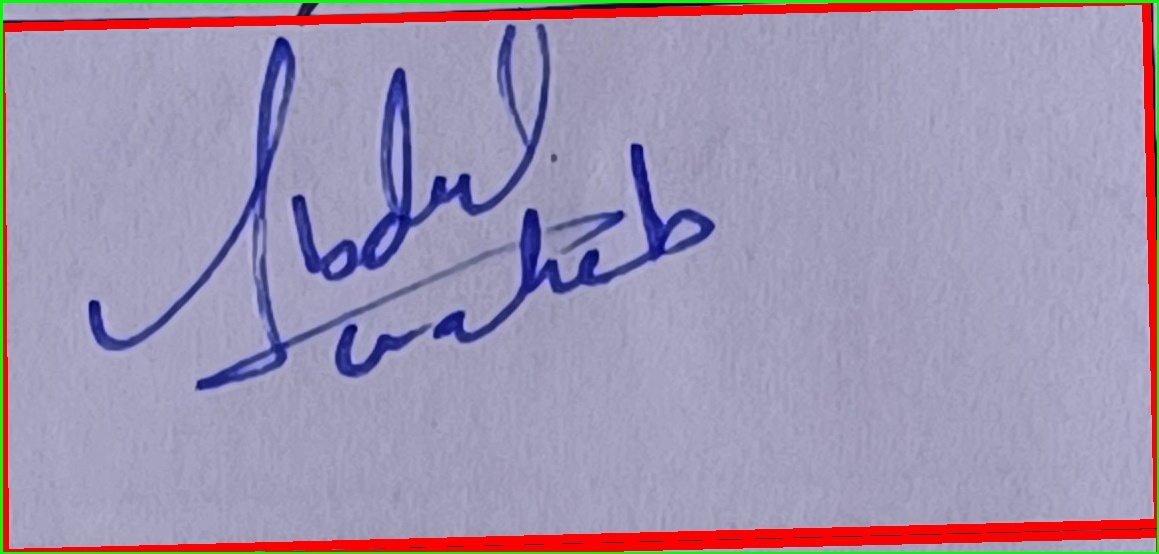 Abdul
waheb